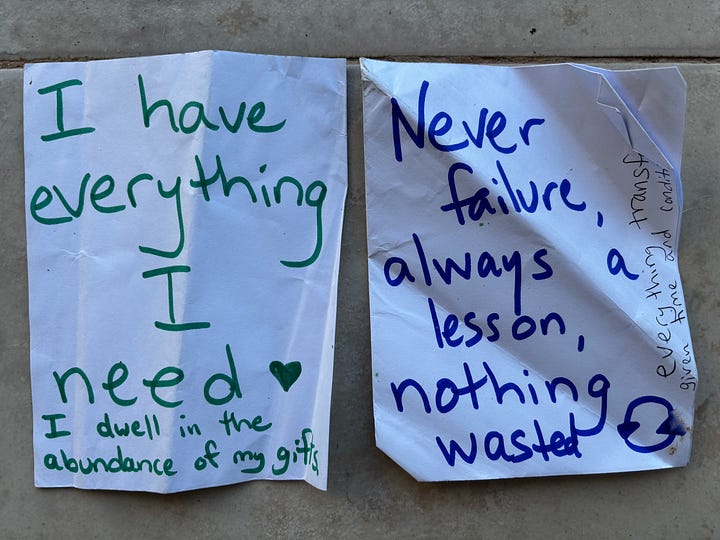 I have
everything
I
need
I dwell in the
abundance of my gifts
Never
failure,
always a
lesson,
nothing
wasted
everything
given time and